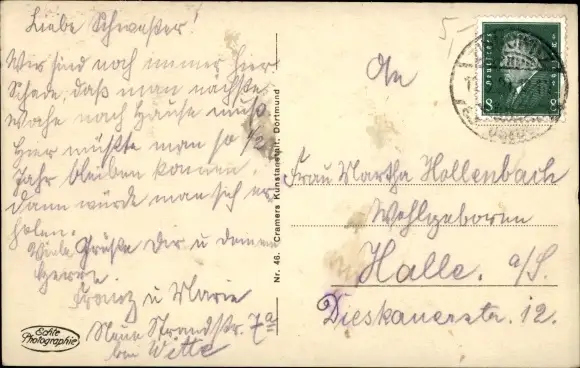 Liebe Schwester!
Wir sind noch immer hier
Schade, daß man nächste
Woche nach Hause muß.
Hier müßte man so 1/2
Jahr bleiben können,
dann würde man sich er
holen.
Viele Grüße Dir u deinem
Herrn
Franz u Marie
Neue Strandstr. 7a
bei Witte
Echte
Photographie
Nr. 46. Cramers Kunstanstalt, Dortmund
5-
Deutsches Reich
8 8
An
Frau Martha Hollenbach
Wohlgeboren
Halle. a/S.
Dieskauerstr. 12.